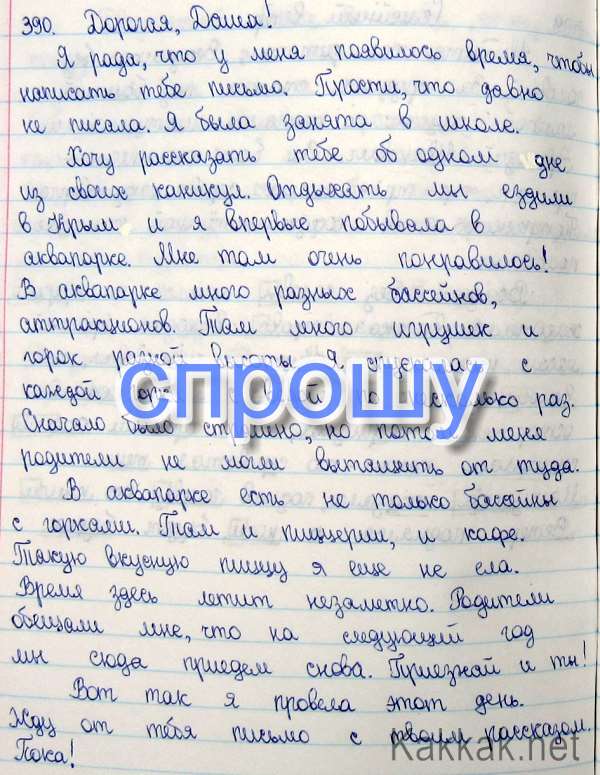 390. Дорогая, Даша!
Я рада, что у меня появилось время, чтобы
написать тебе письмо. Прости, что давно
не писала. Я была занята в школе.
Хочу рассказать тебе об одном дне
из своих каникул. Отдыхать мы ездили
в Крым и я впервые побывала в
аквапарке. Мне там очень понравилось!
В аквапарке много разных бассейнов,
аттракционов. Там много игрушек и
горок разной высоты. Я спускалась с
каждой раз.
Сначало было страшно, но меня
родители не могли вытащить от туда.
В аквапарке есть не только бассейны
с горками. Там и пиццерии, и кафе.
Такую вкусную пиццу я еще не ела.
Время здесь летит незаметно. Родители
обещали мне, что на следующий год
мы сюда приедем снова. Приезжай и ты!
Вот так я провела этот день.
Жду от тебя письмо с твоим рассказом.
Пока!
спрошу
Kakkak.net